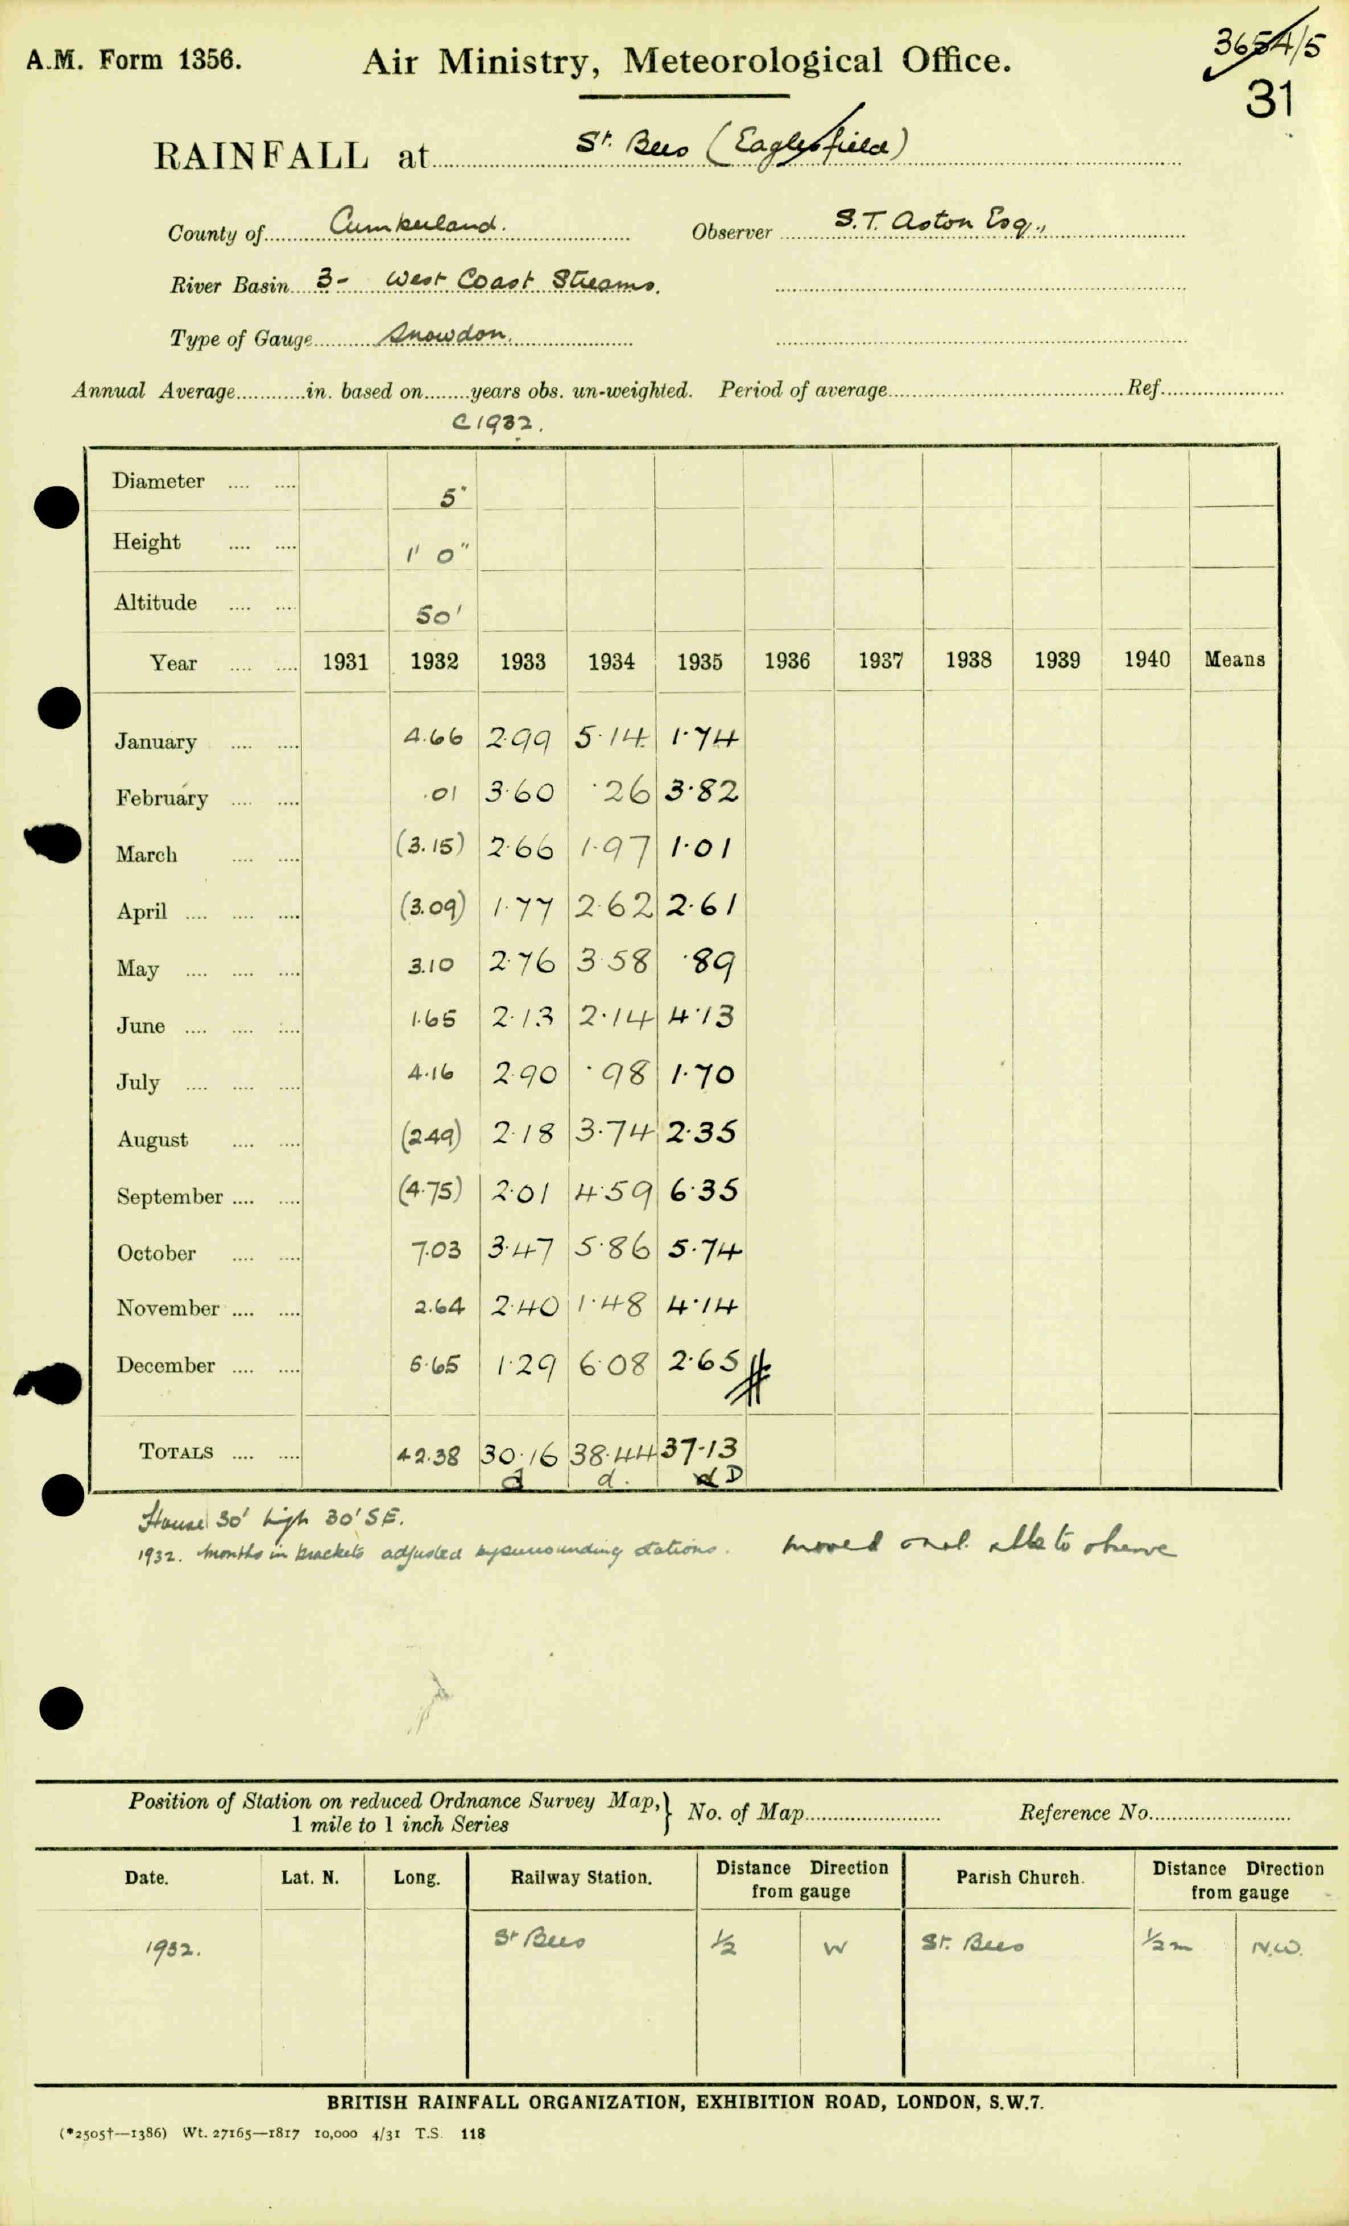 A.M. Form 1356.
Air Ministry, Meteorological Office.
3654/5
31
RAINFALL at St. Bees (Eaglesfield)
County of Cumberland.
Observer S.T. Aston Esq.,
River Basin 3- West Coast Streams.
Type of Gauge Snowdon.
Annual Average............in. based on........years obs. un-weighted. Period of average........................................Ref.....................
C 1932.
Diameter .... .... 5"
Height .... .... 1' 0"
Altitude .... .... 50'
Year .... .... 1931 1932 1933 1934 1935 1936 1937 1938 1939 1940 Means
January .... .... 4.66 2.99 5.14 1.74
February .... .... .01 3.60 .26 3.82
March .... .... (3.15) 2.66 1.97 1.01
April .... .... .... (3.09) 1.77 2.62 2.61
May .... .... .... 3.10 2.76 3.58 .89
June .... .... .... 1.65 2.13 2.14 4.13
July .... .... .... 4.16 2.90 .98 1.70
August .... .... (2.49) 2.18 3.74 2.35
September .... .... (4.75) 2.01 4.59 6.35
October .... .... 7.03 3.47 5.86 5.74
November .... .... 2.64 2.40 1.48 4.14
December .... .... 5.65 1.29 6.08 2.65
TOTALS .... .... 42.38 30.16 38.44 37.13
d d. d D
House 30' high 30' S E.
1932. Months in brackets adjusted by surrounding stations.
moved to observe
Position of Station on reduced Ordnance Survey Map, 1 mile to 1 inch Series } No. of Map........................ Reference No.........................
Date. Lat. N. Long. Railway Station. Distance Direction from gauge Parish Church. Distance Direction from gauge
1932. St Bees ½ W St. Bees ½ m N.W.
BRITISH RAINFALL ORGANIZATION, EXHIBITION ROAD, LONDON, S.W.7.
(*2505†—1386) Wt. 27165—1817 10,000 4/31 T.S. 118